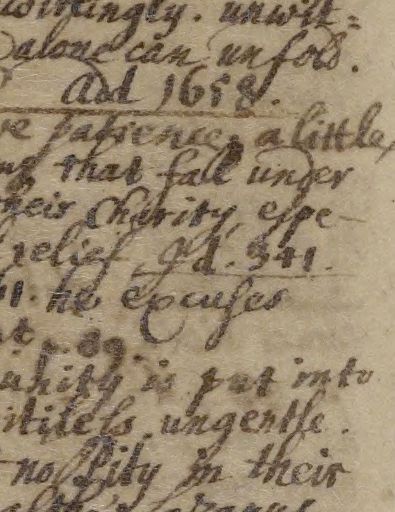 unwit=
alone can unfold.
Add 1658.
patience, a little,
that fall under
their Charity, espe-
relief Id. 341.
he excuses
p. 89.
is put into
ungentle.
no Pity in their